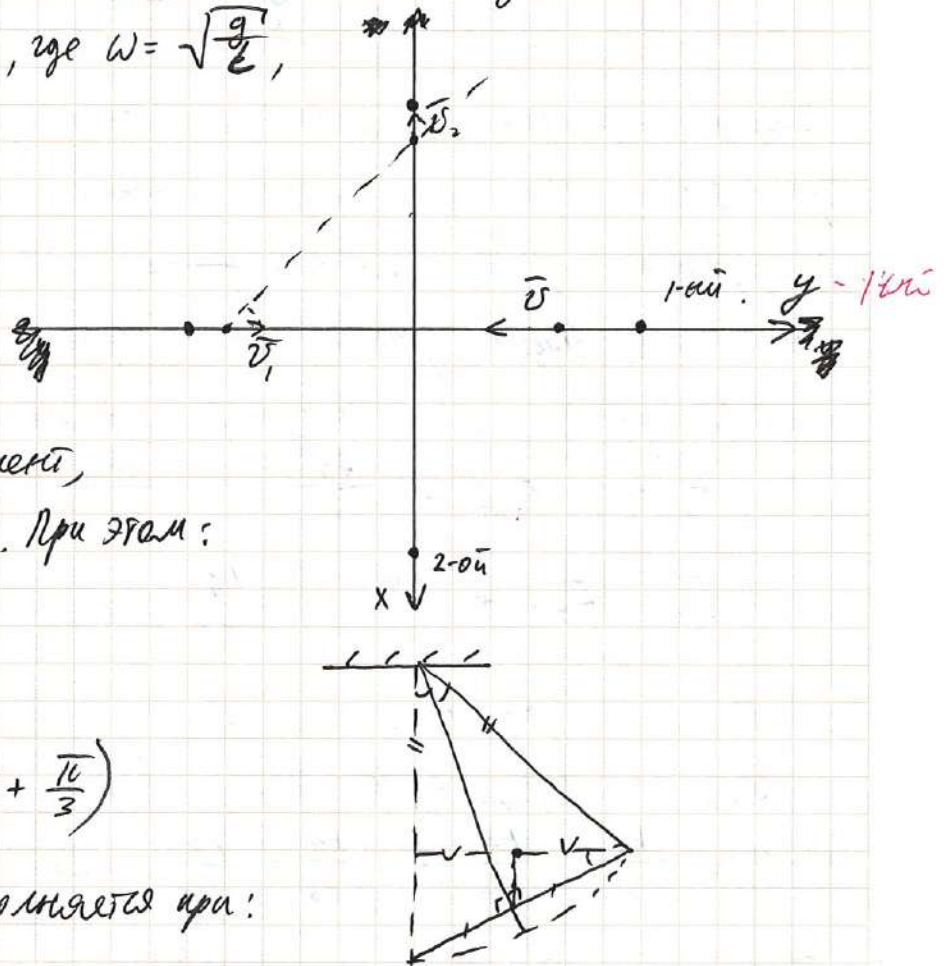 , где ω = √(g/ℓ) ,
v̄₂
v̄
1-ый . y - 1ый
v̄₁
мент,
. При этом :
2-ой
x
+ π/3 )
олняется при :